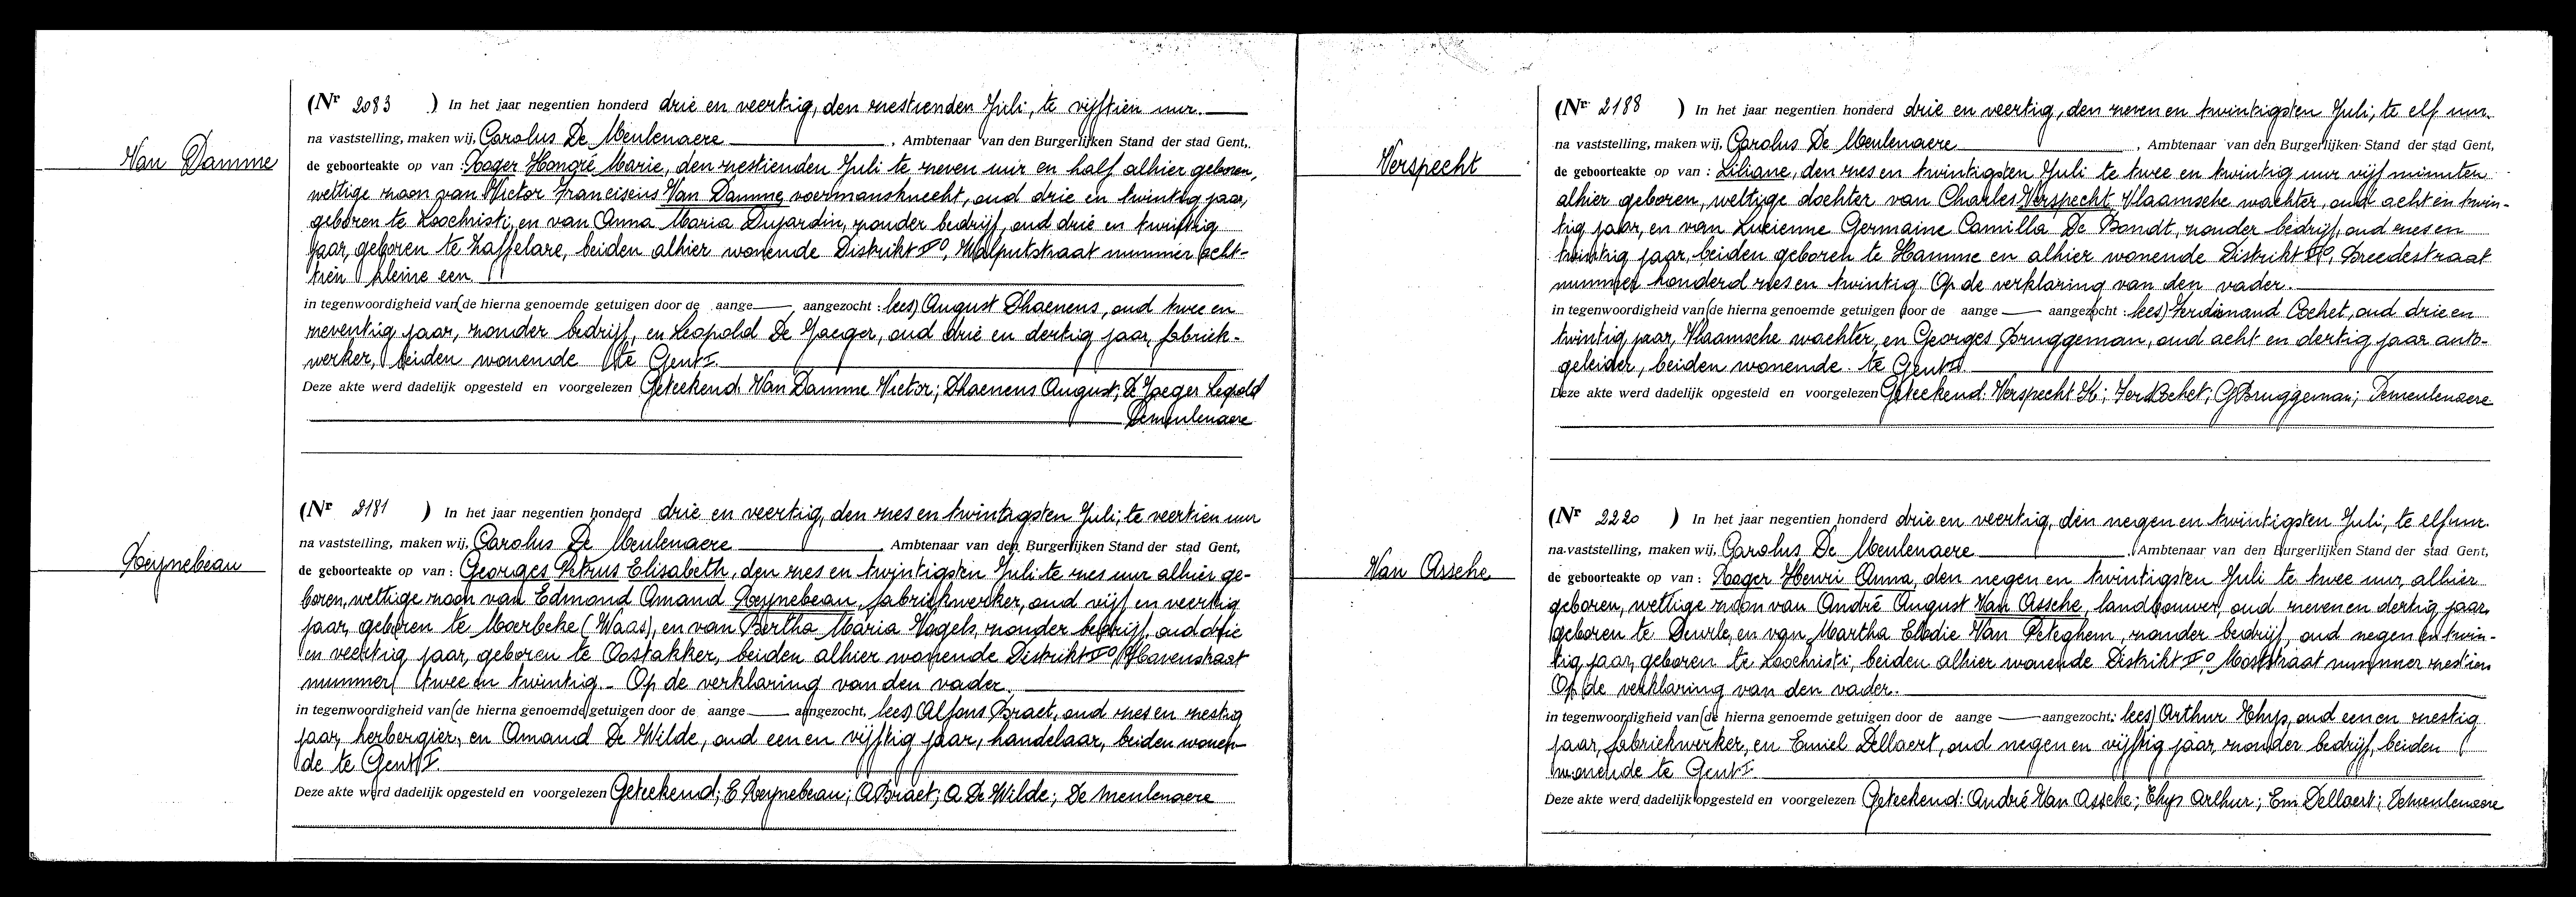 Van Damme
(Nr 2083 ) In het jaar negentien honderd drie en veertig, den zestienden Juli, te vijftien uur.
na vaststelling, maken wij, Carolus De Meulenaere, Ambtenaar van den Burgerlijken Stand der stad Gent,
de geboorteakte op van : Roger Hongré Marie, den zestienden Juli te zeven uur en half alhier geboren,
wettige zoon van Victor Franciscus Van Damme, voermansknecht, oud drie en twintig jaar,
geboren te Loochristi, en van Anna Maria Dujardin, zonder bedrijf, oud drie en twintig
jaar, geboren te Zaffelare, beiden alhier wonende Distrikt II°, Walputstraat nummer acht-
tien kleine een.
in tegenwoordigheid van (de hierna genoemde getuigen door de aange aangezocht : lees) August Dhaenens, oud twee en
zeventig jaar, zonder bedrijf, en Leopold De Jaeger, oud drie en dertig jaar, fabriek-
werker, beiden wonende te Gent I.
Deze akte werd dadelijk opgesteld en voorgelezen Geteekend: Van Damme Victor; Dhaenens August; De Jaeger Leopold
Demeulenaere
Reynebeau
(Nr 2181 ) In het jaar negentien honderd drie en veertig, den zes en twintigsten Juli, te veertien uur
na vaststelling, maken wij, Carolus De Meulenaere, Ambtenaar van den Burgerlijken Stand der stad Gent,
de geboorteakte op van : Georges Petrus Elisabeth, den zes en twintigsten Juli te zes uur alhier ge-
boren, wettige zoon van Edmond Amand Reynebeau, fabriekwerker, oud vijf en veertig
jaar, geboren te Moerbeke (Waas), en van Bertha Maria Vogels, zonder bedrijf, oud drie
en veertig jaar, geboren te Oostakker, beiden alhier wonende Distrikt II°, Havenstraat
nummer twee en twintig. - Op de verklaring van den vader.
in tegenwoordigheid van (de hierna genoemde getuigen door de aange aangezocht, lees) Alfons Braet, oud zes en zestig
jaar, herbergier, en Amand De Wilde, oud een en vijftig jaar, handelaar, beiden wonen-
de te Gent I.
Deze akte werd dadelijk opgesteld en voorgelezen Geteekend; E Reynebeau; A Braet; A De Wilde; De Meulenaere
Verspecht
(Nr 2188 ) In het jaar negentien honderd drie en veertig, den zeven en twintigsten Juli, te elf uur.
na vaststelling, maken wij, Carolus De Meulenaere, Ambtenaar van den Burgerlijken Stand der stad Gent,
de geboorteakte op van : Liliane, den zes en twintigsten Juli te twee en twintig uur vijf minuten
alhier geboren, wettige dochter van Charles Verspecht, Vlaamsche wachter, oud acht en twin-
tig jaar, en van Lucienne Germaine Camilla De Bondt, zonder bedrijf, oud zes en
twintig jaar, beiden geboren te Hamme en alhier wonende Distrikt II°, Breedestraat
nummer honderd zes en twintig. Op de verklaring van den vader.
in tegenwoordigheid van (de hierna genoemde getuigen door de aange aangezocht : lees) Ferdinand Cochet, oud drie en
twintig jaar, Vlaamsche wachter, en Georges Bruggeman, oud acht en dertig jaar auto-
geleider, beiden wonende te Gent I.
Deze akte werd dadelijk opgesteld en voorgelezen Geteekend: Verspecht K; Ferd Cochet; G Bruggeman; Demeulenaere
Van Assche
(Nr 2220 ) In het jaar negentien honderd drie en veertig, den negen en twintigsten Juli, te elf uur.
na vaststelling, maken wij, Carolus De Meulenaere, Ambtenaar van den Burgerlijken Stand der stad Gent,
de geboorteakte op van : Roger Henri Anna, den negen en twintigsten Juli te twee uur, alhier
geboren, wettige zoon van André August Van Assche, landbouwer, oud zeven en dertig jaar,
geboren te Deurle, en van Martha Elodie Van Peteghem, zonder bedrijf, oud negen en twin-
tig jaar, geboren te Loochristi, beiden alhier wonende Distrikt II° straat nummer zestien
Op de verklaring van den vader.
in tegenwoordigheid van (de hierna genoemde getuigen door de aange aangezocht: lees) Arthur Thys, oud een en zestig
jaar, fabriekwerker, en Emiel Dellaert, oud negen en vijftig jaar, zonder bedrijf, beiden
wonende te Gent I.
Deze akte werd dadelijk opgesteld en voorgelezen Geteekend: André Van Assche; Thys Arthur; Em Dellaert; Demeulenaere